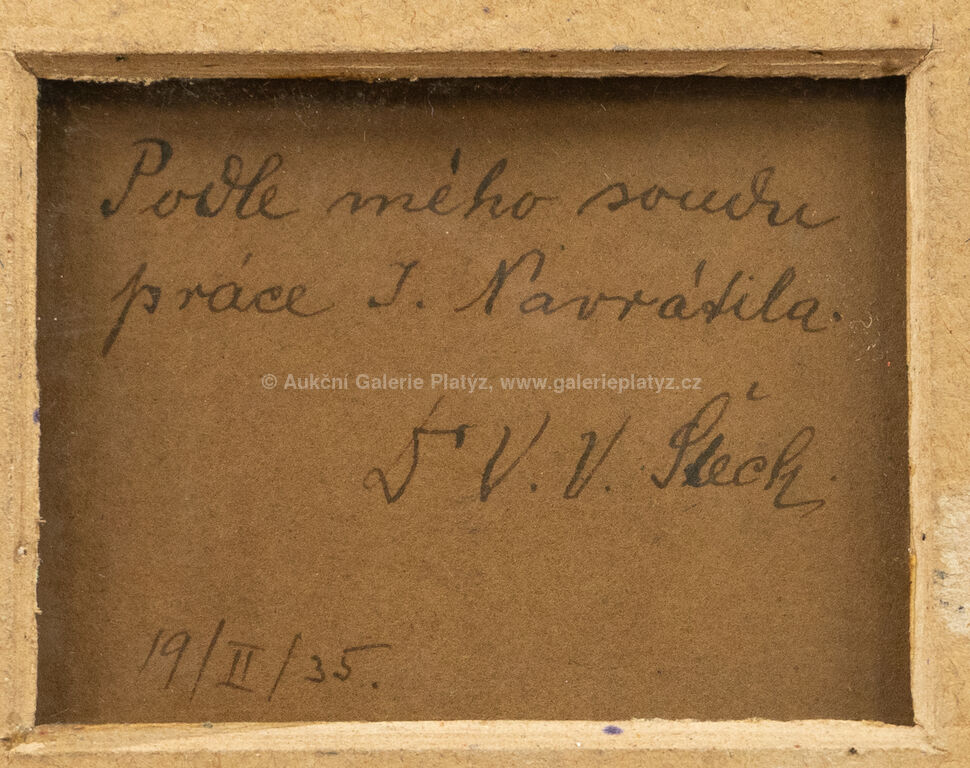 Podle mého soudu
práce J. Navrátila.
© Aukční Galerie Platýz, www.galerieplatyz.cz
Dr V. V. Štech.
19/II/35.